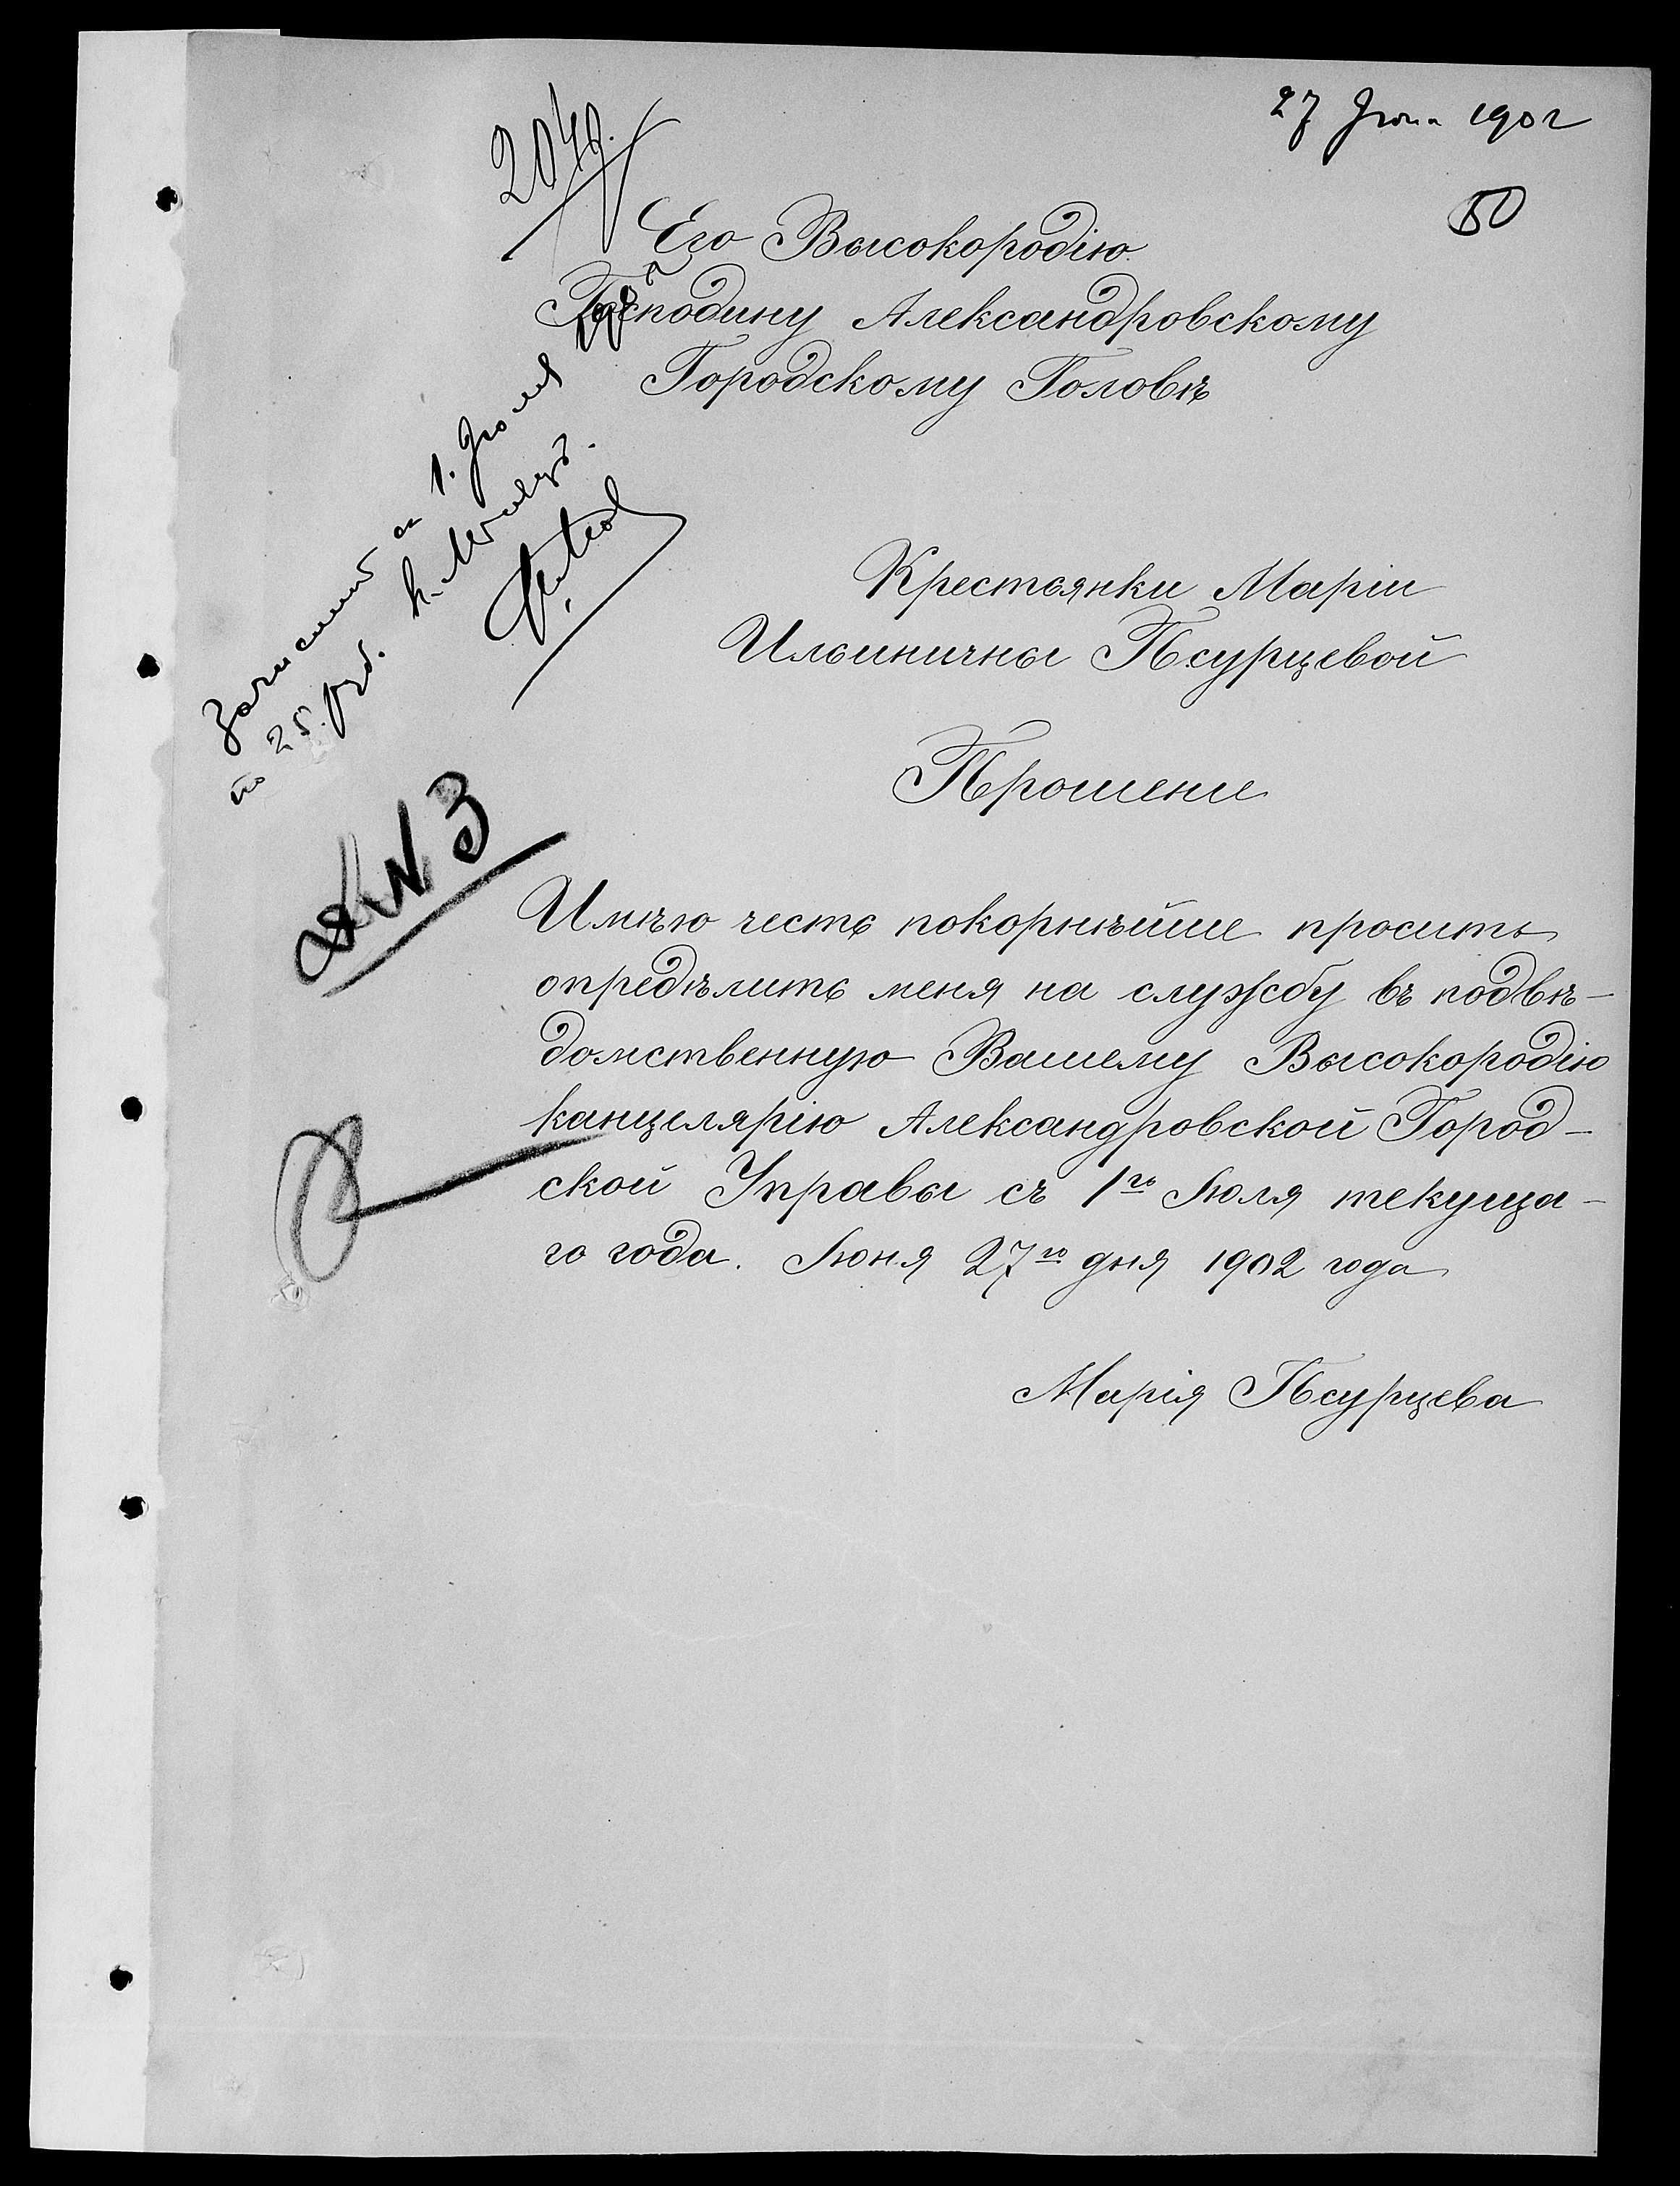 27 Іюня 1902
50
2049.
Его Высокородію
Господину Александровскому
Городскому Головѣ
Зачислить съ 1. Іюля 1902
по 25. руб. въ мѣсяцъ.
Крестьянки Маріи
Ильиничны Псурцевой
Прошение
№ 3
Имѣю честь покорнѣйше просить
опредѣлить меня на службу въ подвѣ-
домственную Вашему Высокородію
канцелярію Александровской Город-
ской Управы съ 1го Іюля текуща-
го года. Іюня 27го дня 1902 года
Марія Псурцева